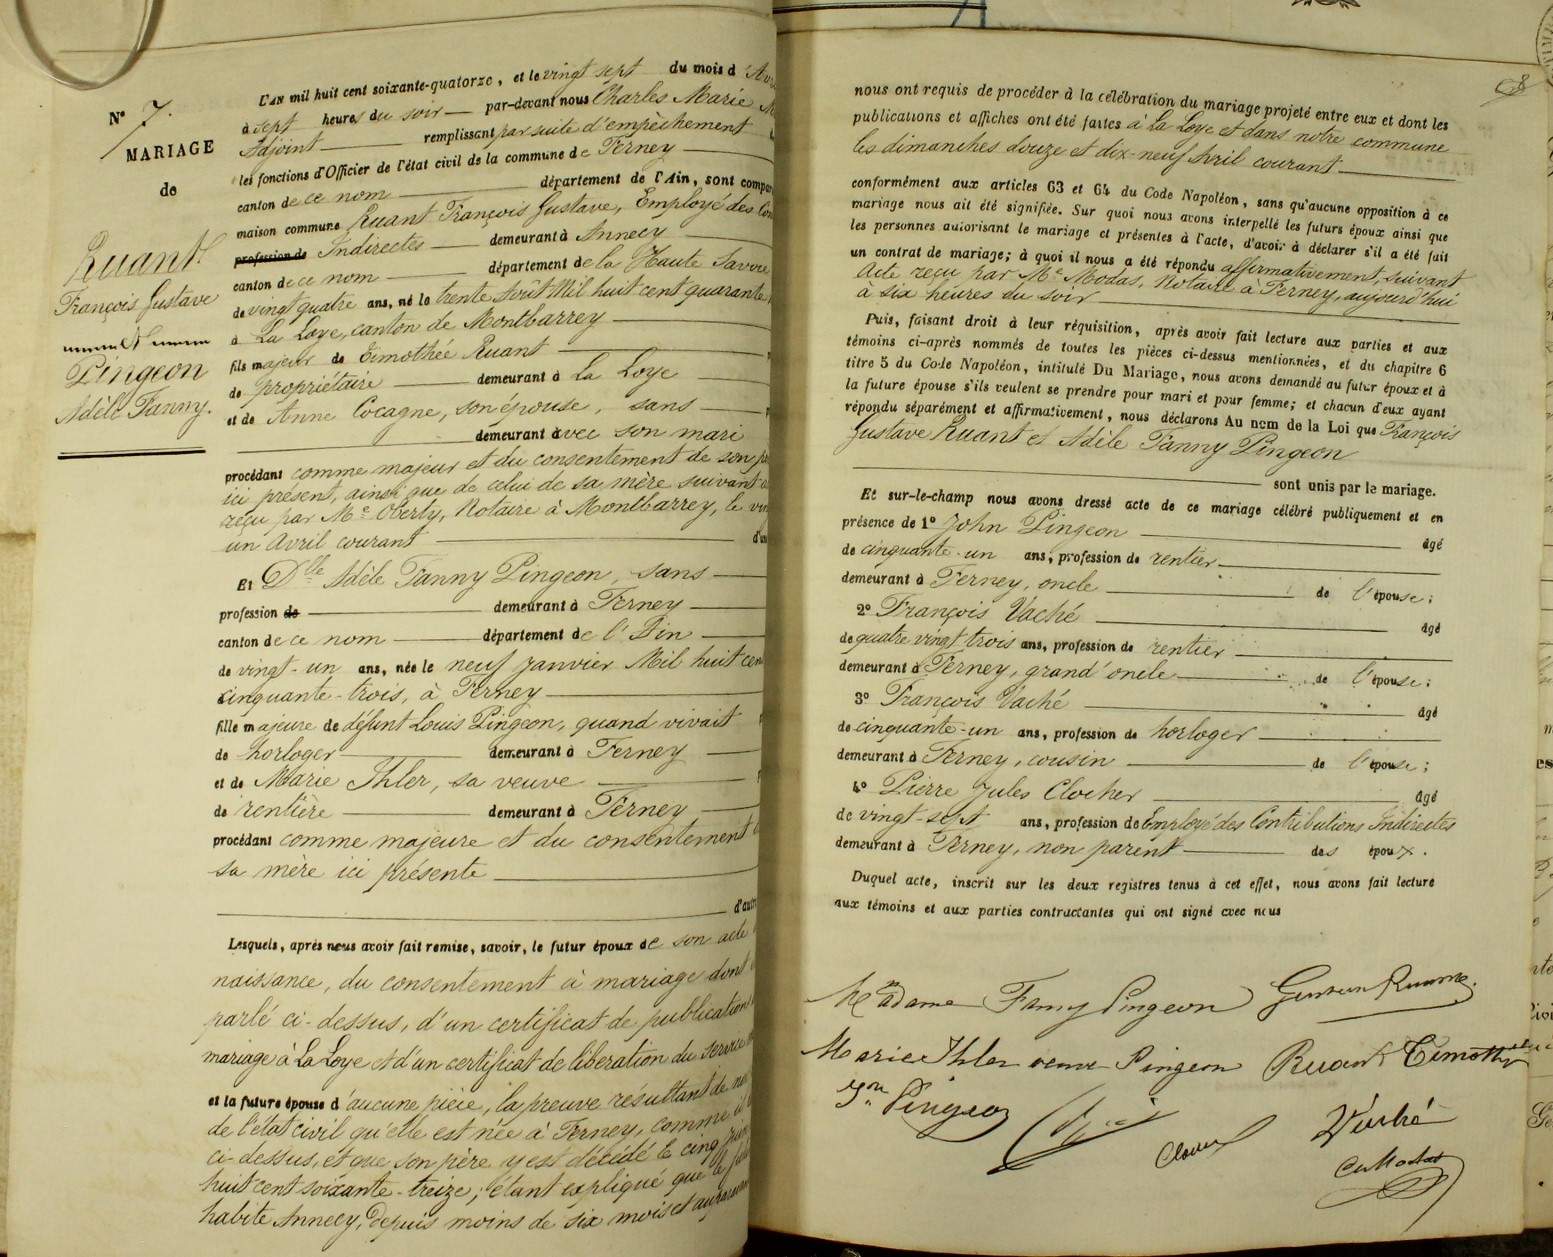 N° 7.
MARIAGE
de
Ruant
François Gustave
et
Pingeon
Adèle Fanny.
L'AN mil huit cent soixante-quatorze, et le vingt sept du mois d'Av
à sept heures du soir par-devant nous Charles Marie M
Adjoint remplissant par suite d'empêchement
les fonctions d'Officier de l'état civil de la commune de Ferney
canton de ce nom département de l'Ain, sont compar
maison commune Ruant François Gustave, Employé des Con
profession de Indirectes demeurant à Annecy
canton de ce nom département de la Haute Savoie
de vingt quatre ans, né le trente Août Mil huit cent quarante
à La Loye, canton de Montbarrey
fils majeur de Timothée Ruant
de propriétaire demeurant à La Loye
et de Anne Cocagne, son épouse, sans
demeurant avec son mari
procédant comme majeur et du consentement de son pè
ici présent, ainsi que de celui de sa mère suivant a
reçu par Me Oberty, Notaire à Montbarrey, le vin
un Avril courant d'un
Et Dlle Adèle Fanny Pingeon, sans
profession de demeurant à Ferney
canton de ce nom département de l'Ain
de vingt-un ans, née le neuf Janvier Mil huit cen
cinquante-trois, à Ferney
fille majeure de défunt Louis Pingeon, quand vivait
de horloger demeurant à Ferney
et de Marie Ihler, sa veuve
de rentière demeurant à Ferney
procédant comme majeure et du consentement
sa mère ici présente
d'autre
Lesquels, après nous avoir fait remise, savoir, le futur époux de son acte
naissance, du consentement à mariage dont
parlé ci-dessus, d'un certificat de publication
mariage à La Loye et d'un certificat de libération du service
et la future épouse d'aucune pièce, la preuve résultant de nos
de l'état civil qu'elle est née à Ferney, comme il
ci-dessus, et que son père y est décédé le cinq
huit cent soixante-treize; étant expliqué que le fu
habite Annecy, depuis moins de six mois et auparavant
nous ont requis de procéder à la célébration du mariage projeté entre eux et dont les
publications et affiches ont été faites à La Loye et dans notre commune
les dimanches douze et dix-neuf Avril courant
conformément aux articles 63 et 64 du Code Napoléon, sans qu'aucune opposition à ce
mariage nous ait été signifiée. Sur quoi nous avons interpellé les futurs époux ainsi que
les personnes autorisant le mariage et présentes à l'acte, d'avoir à déclarer s'il a été fait
un contrat de mariage; à quoi il nous a été répondu affirmativement, suivant
Acte reçu par Me Modas, Notaire à Ferney, aujourd'hui
à six heures du soir
Puis, faisant droit à leur réquisition, après avoir fait lecture aux parties et aux
témoins ci-après nommés de toutes les pièces ci-dessus mentionnées, et du chapitre 6
titre 5 du Code Napoléon, intitulé Du Mariage, nous avons demandé au futur époux et à
la future épouse s'ils veulent se prendre pour mari et pour femme; et chacun d'eux ayant
répondu séparément et affirmativement, nous déclarons Au nom de la Loi que François
Gustave Ruant et Adèle Fanny Pingeon
sont unis par le mariage.
Et sur-le-champ nous avons dressé acte de ce mariage célébré publiquement et en
présence de 1° John Pingeon âgé
de cinquante-un ans, profession de rentier
demeurant à Ferney, oncle de l'épouse;
2° François Vaché âgé
de quatre vingt trois ans, profession de rentier
demeurant à Ferney, grand'oncle de l'épouse;
3° François Vaché âgé
de cinquante-un ans, profession de horloger
demeurant à Ferney, cousin de l'épouse;
4° Pierre Jules Clocher âgé
de vingt-sept ans, profession de Employé des Contributions Indirectes
demeurant à Ferney, non parent des époux.
Duquel acte, inscrit sur les deux registres tenus à cet effet, nous avons fait lecture
aux témoins et aux parties contractantes qui ont signé avec nous
Madame Fanny Pingeon Gustave Ruant
Marie Ihler veuve Pingeon Ruant Timothée
Jn Pingeon
Vaché